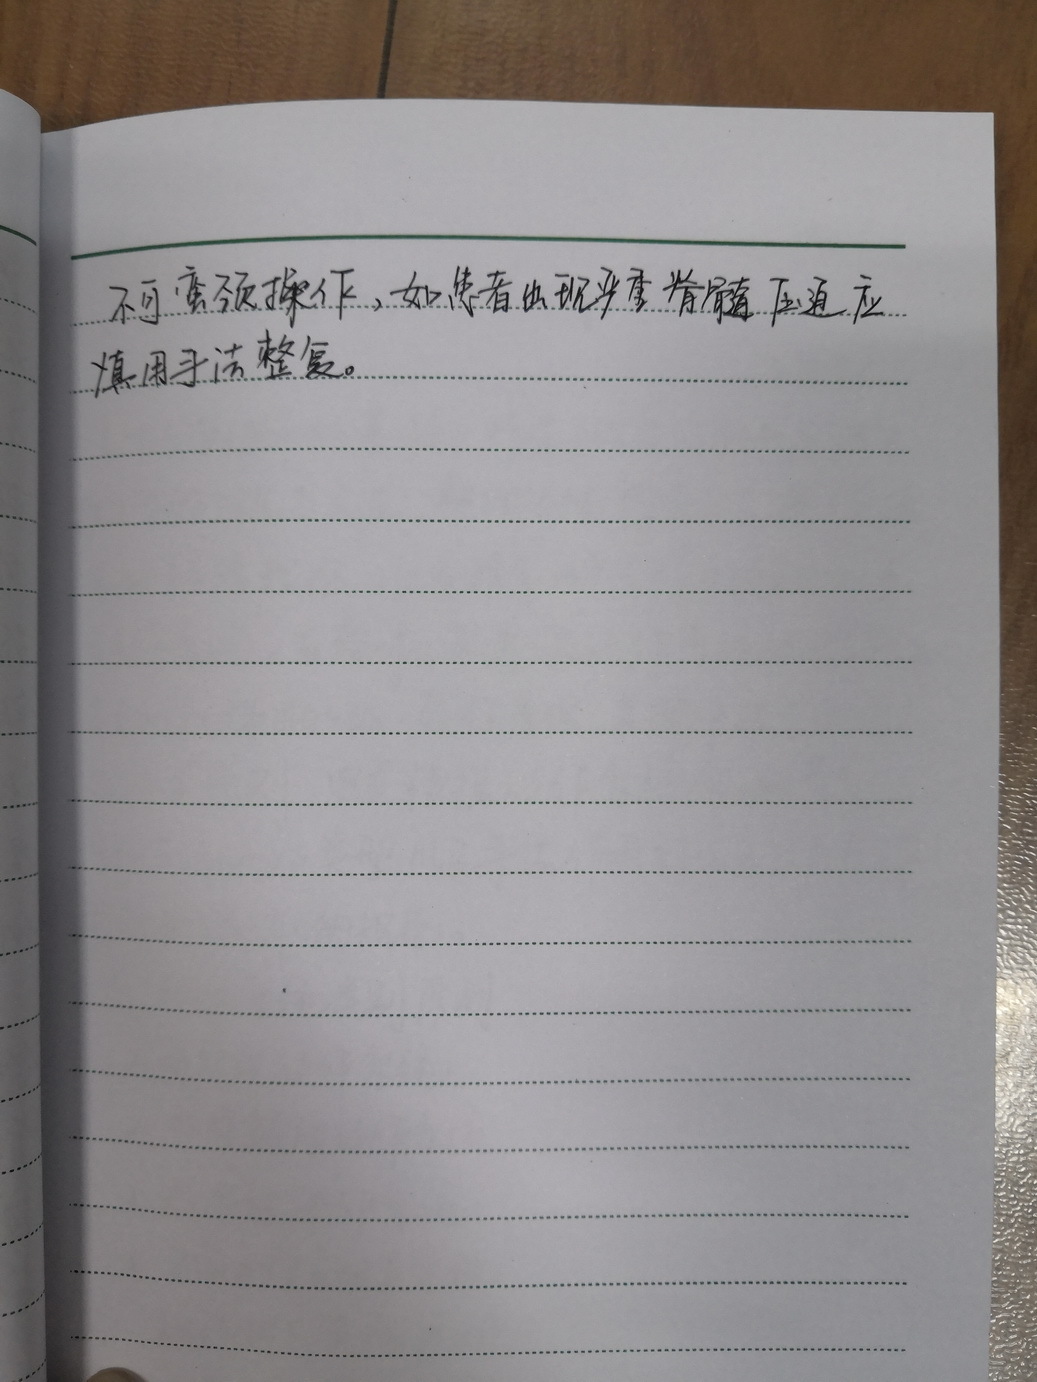 不可蛮领操作,如患者出现严重脊髓压迫应
慎用手法整复。